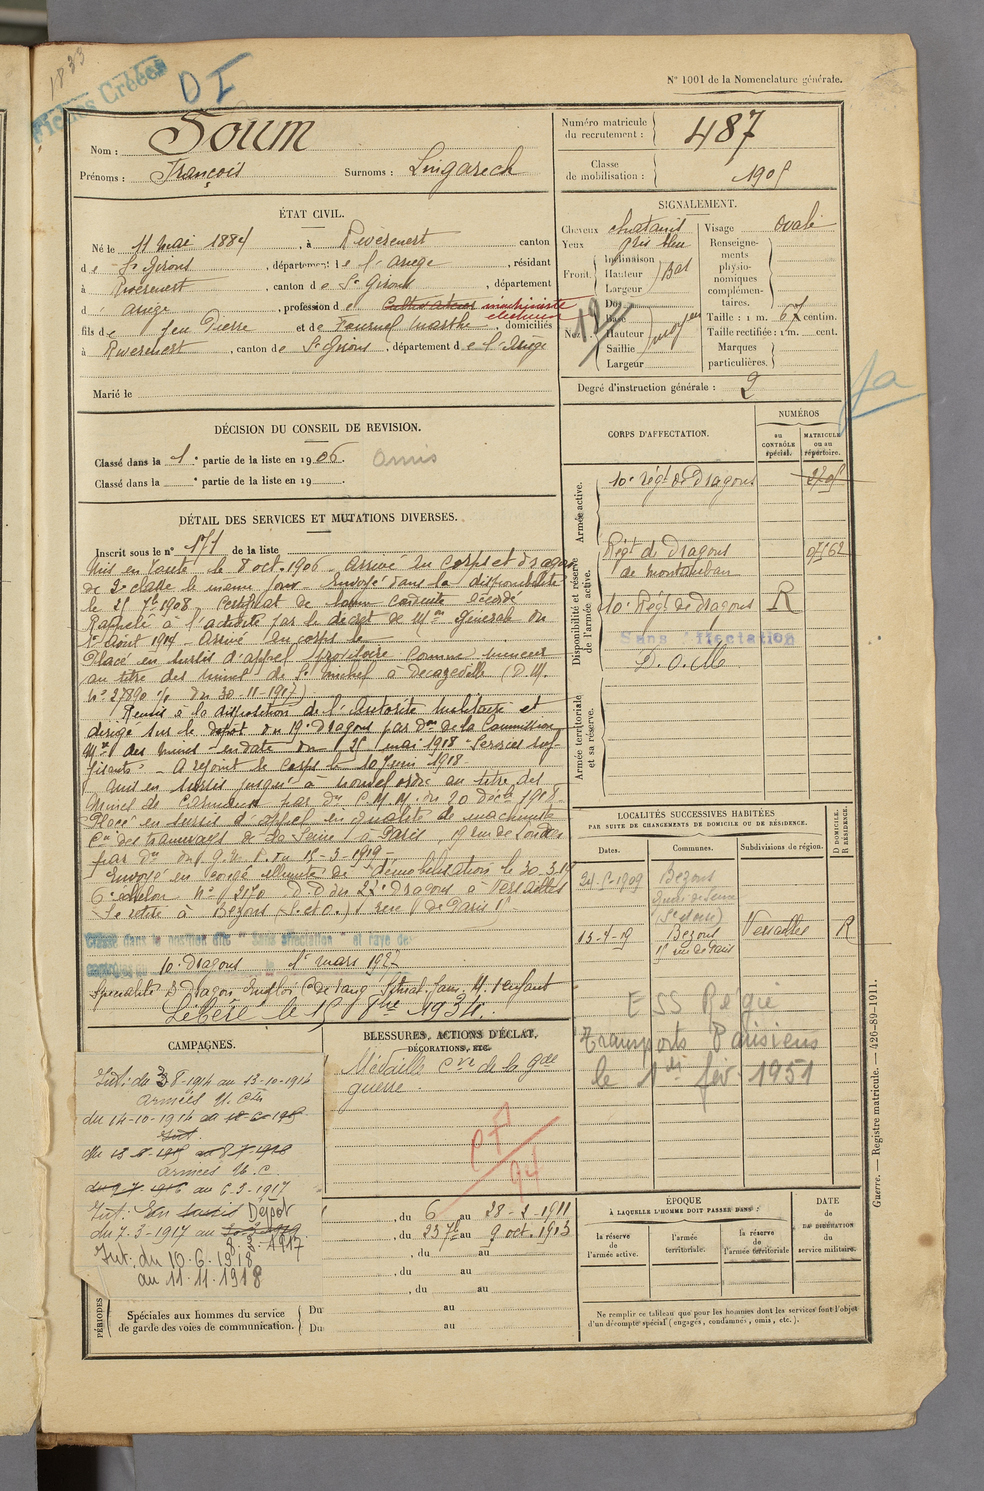 1833
Fiches Créées
D I
N° 1001 de la Nomenclature générale.
Nom : Soum
Prénoms : François Surnoms : Lingarech
Numéro matricule du recrutement : 487
Classe de mobilisation : 1905
ÉTAT CIVIL.
Né le 11 mai 1884, à Riverenert canton
de St Girons, département de l'Ariège, résidant
à Riverenert, canton de St Girons, département
d' Ariège, profession de Cultivateur machiniste électricien
fils de feu Pierre et de Fournel Marthe, domiciliés
à Riverenert, canton de St Girons, département de l'Ariège
Marié le
SIGNALEMENT.
Cheveux chatains
Yeux gris bleu
Front. Inclinaison Hauteur Largeur Bas
Nez. Dos Base Hauteur Saillie Largeur moyen
12
Visage ovale
Renseignements physionomiques complémentaires.
Taille : 1 m. 67 centim.
Taille rectifiée : 1 m. cent.
Marques particulières.
Degré d'instruction générale : 2
DÉCISION DU CONSEIL DE REVISION.
Classé dans la 1e partie de la liste en 1906. Omis
Classé dans la e partie de la liste en 19
CORPS D'AFFECTATION.
NUMÉROS
au CONTRÔLE spécial.
MATRICULE ou au répertoire.
Armée active.
10e Régt de Dragons
Disponibilité et réserve de l'armée active.
Régt de Dragons
de Montauban
10e Régt de Dragons R
Sans affectation
D. O. M.
Armée territoriale et sa réserve.
DÉTAIL DES SERVICES ET MUTATIONS DIVERSES.
Inscrit sous le n° de la liste
Mis en route le 8 oct. 1906. Arrivé au corps et dragon
de 2e classe le même jour. Envoyé dans la disponibilité
le 25 7bre 1908. Certificat de bonne conduite accordé
Rappelé à l'activité par le décret de Mon Générale du
1er Août 1914. Arrivé au corps le
Placé en sursis d'appel provisoire comme mineur
au titre des mines de à Decazeville (D.M.
N° 27890 du 30-11-1917)
Remis à la disposition de l'Autorité militaire et
dirigé sur le dépôt du 19e Dragons par Don de la Commission
des mines en date du 25 mai 1918 "Services suf-
fisants". A rejoint le Corps le 10 Juin 1918.
Mis en sursis jusqu'à nouvel ordre au titre des
Mines de Carmaux par Don C.M.M. du 20 Décbre 1918.
Placé en sursis d'appel en qualité de machiniste
Cie des tramways de la Seine à Paris, rue de Londres
par Don du G.M.P. du 15-3-1919
Envoyé en congé illimité de démobilisation le 30-3-19
6e échelon N° 2170 D.D du 22e Dragons à Versailles
Se retire à Bezons (S. et O.) 1 rue de Paris
Classé dans la position dite "Sans affectation" et rayé des
10e Dragons le 1er mars 1927
Libéré le 15 8bre 1934.
LOCALITÉS SUCCESSIVES HABITÉES
PAR SUITE DE CHANGEMENTS DE DOMICILE OU DE RÉSIDENCE.
Dates. Communes. Subdivisions de région. D DOMICILE. R RÉSIDENCE.
Bezons
Bezons Versailles R
rue de Paris
E SS Régie
Transports Parisiens
le 1er fév. 1951
CAMPAGNES.
Int: du 3-8-1914 au 13-10-1914
Armées N. Cie
du 14-10-1914
Int.
Armées N. C.
au 6-3-1917
Int: En sursis Dépôt
du 7-3-1917 au
8-3-1917
Int: du 10.6.1918
au 11.11.1918
BLESSURES, ACTIONS D'ÉCLAT,
DÉCORATIONS, ETC.
Médaille Cve de la Gde
guerre
, du 6 au 28-2-1911
, du 23 7bre au 9 oct. 1913
, du au
, du au
, du au
PÉRIODES
Spéciales aux hommes du service
de garde des voies de communication.
Du au
Du au
ÉPOQUE
À LAQUELLE L'HOMME DOIT PASSER DANS :
la réserve de l'armée active.
l'armée territoriale.
la réserve de l'armée territoriale
DATE de LA LIBÉRATION du service militaire.
Ne remplir ce tableau que pour les hommes dont les services font l'objet
d'un décompte spécial (engagés, condamnés, omis, etc.).
Guerre. — Registre matricule. — 426-89-1911.